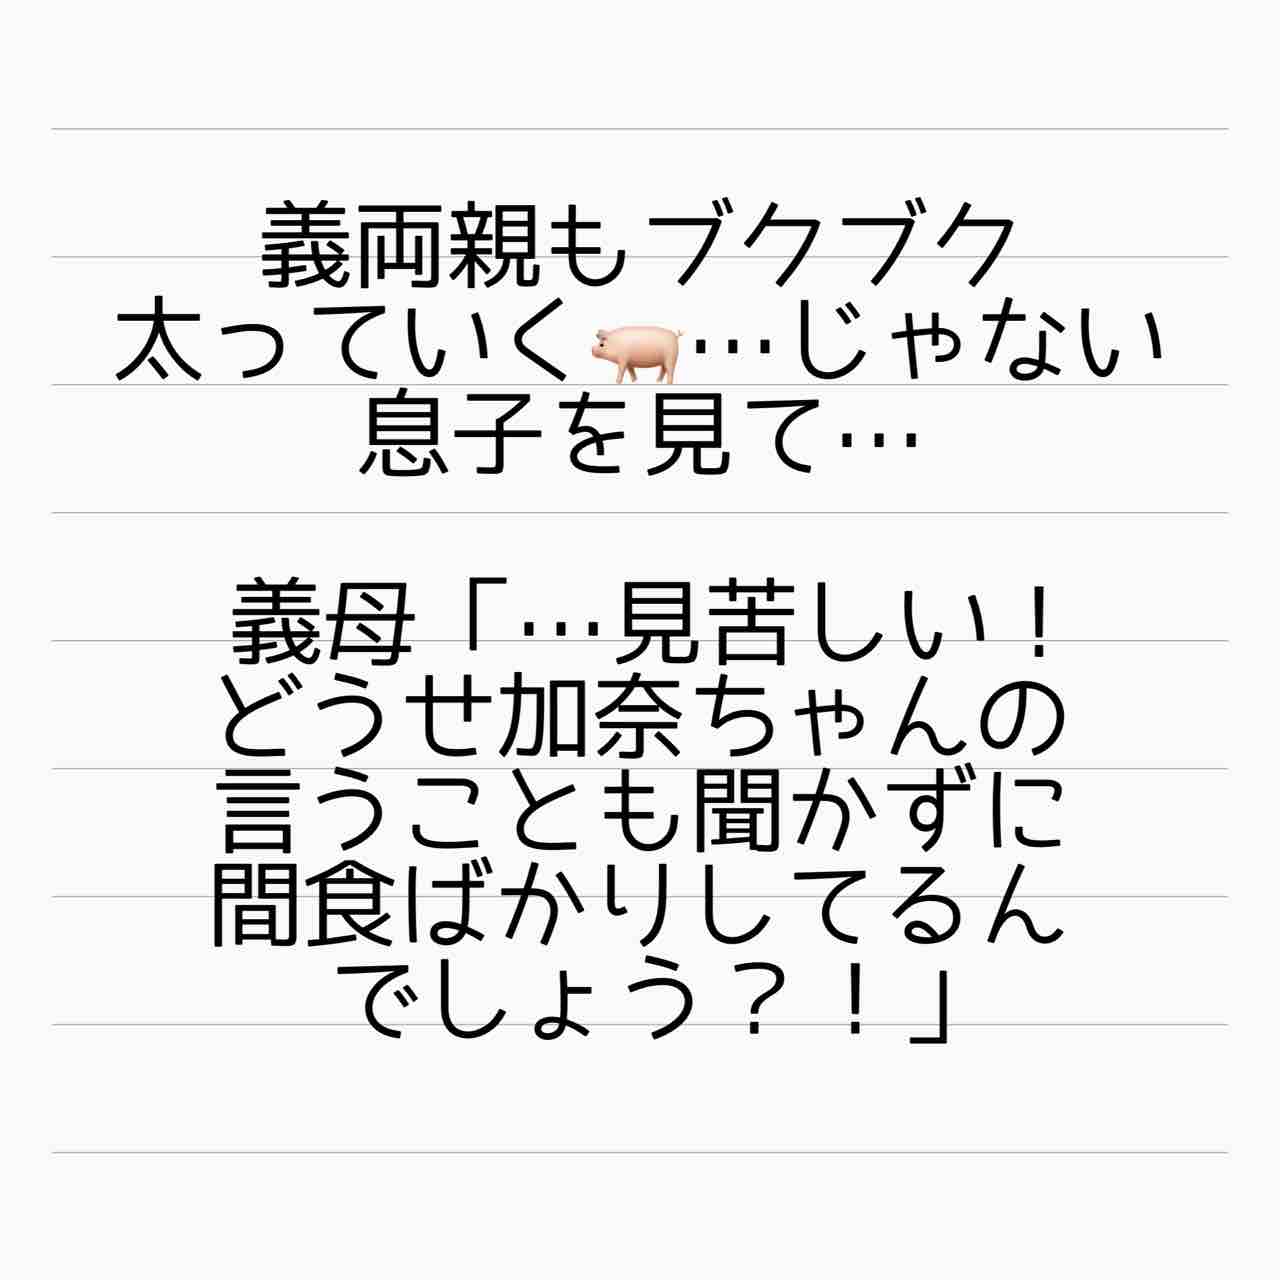 義両親もブクブク
太っていく🐖…じゃない
息子を見て…
義母「…見苦しい！
どうせ加奈ちゃんの
言うことも聞かずに
間食ばかりしてるん
でしょう？！」